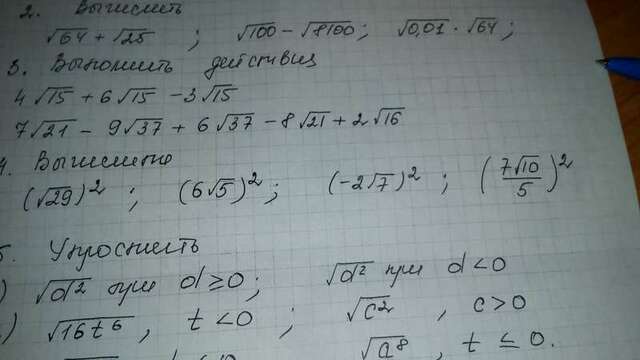 2. Вычислить
√64 + √25 ; √100 − √8100 ; √0,01 · √64 ;
3. Выполнить действия
4√15 + 6√15 − 3√15
7√21 − 9√37 + 6√37 − 8√21 + 2√16
4. Вычислить
(√29)² ; (6√5)² ; (−2√7)² ; (7√10/5)²
5. Упростить
) √d² при d ≥ 0 ; √d² при d < 0
) √16t⁶ , t < 0 ; √c² , c > 0
√a⁸ , t ≤ 0.